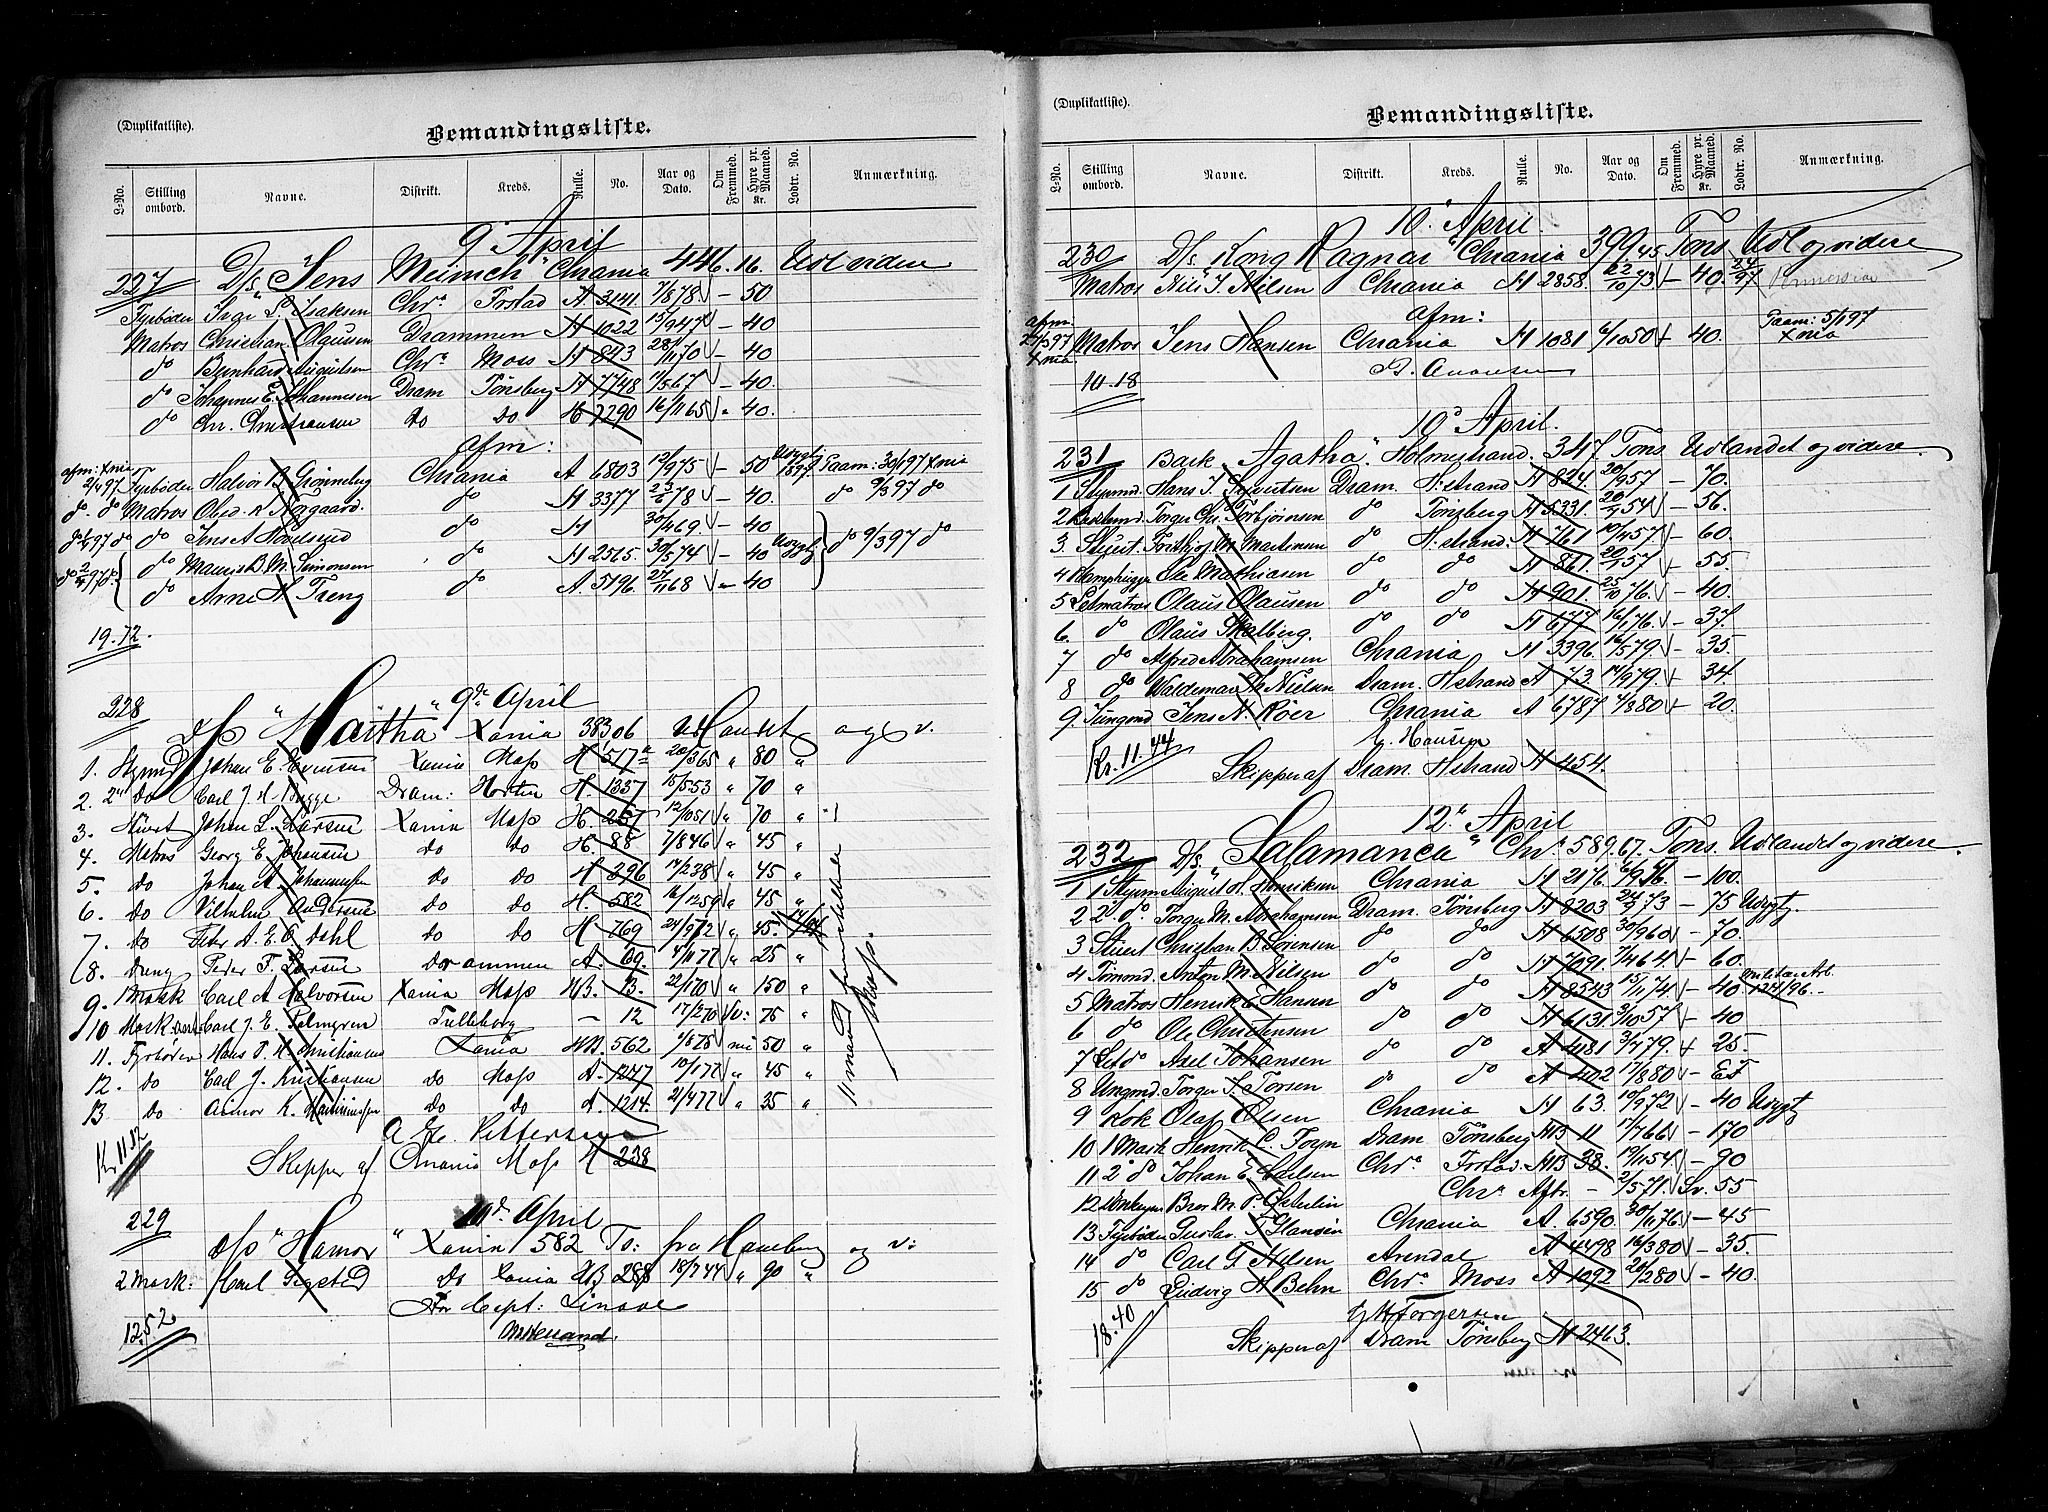 (Duplikatliste).
Bemandingsliste.
L-No. Stilling ombord. Navne. Distrikt. Kreds. Rulle. No. Aar og Dato. Om Fremmed. Hyre pr. Maaned. Kr. Lodtr. No. Anmærkning.
9 April
227 D/s "Jens Meinich" Chrania 446.16. Udl videre
Fyrbøder Inge S. Isaksen Chr.a Frstad A 3141 7/8 78 – 50
Matros Christian Olausen Drammen H 1022 15/9 47 – 40
do Bernhard Augustsen Chr.a Moss H 843 28/11 70 – 40
do Johannes E. Johannesen Dram Tønsberg H 7748 11/5 67 – 40.
do Chr. Christiansen do do H 2290 16/11 65 – 40.
afm:
afm: Xnia 2/4 97 Fyrbøder Halvor B. Grønneberg Chrania A 6803 12/9 75 – 50 Udygt 1897 Paam: 30/1 97 Xnia
do do Matros Oled. A Norgaard. do H 3377 23/6 78 – 40. do 9/3 97 do
do 97 do do Jens A Hovelsrud do H 30/4 69. – 40
do 2/4 97 do do Mauris B. M. Simonsen do H 2515. 30/5 74 – 40 Udygt do 9/3 97 do
do Arne H. Treng do A. 5196. 27/11 68 – 40
19.72.
228
9de April
D/s "Martha Xania 383,06 Udlandet og v.
1. Stymd Johan E. Evensen Xania Moss H. 517a 20/3 65 " 80 "
2. 2" do Carl J. A. Bugge Dram: Horten H. 1337 15/5 53 " 70 "
3. Stuert Johan L. Larsen Xania Moss H. 257 12/10 51 " 70 "
4. Matros Georg E. Johansen do do H. 88 7/8 46 " 45 "
5. do Johan A. Johannessen do do H 396 17/2 38 " 45 "
6. do Vilhelm Andersen do do H. 582 16/12 59 " 45 "
7. do Peder A. E. Dahl do do H 769 24/9 72 " 45.
8. Dreng Peder F. Larsen Drammen A. 69. 4/11 77 " 25 "
9. 1 Mask Carl A Halvorsen Xania Moss HB. 13. 22/1 70 " 150 "
10 Mask. Carl J. E. Palmgren Trelleborg – 12 17/2 70 Sv: 75 "
11. Fyrbøder Hans P. H. Christiansen Xania HB. 562 1/6 75 50 "
12. do Carl J. Kristiansen do Moss A. 1247 10/1 77 " 45 "
13. do Aimar K. do do A. 1214. 2/4 77 " 35 "
11 mand
Moss.
A E. Pettersen
Kr 11.52
Skipper af Chrania Moss H 238
229
10de April
D/s "Hamor" Xania 582 To: fra Hamburg og v:
2 Mask. Emil Sigsted do Xania HB 288 18/7 44 " 90 "
For Capt: Linaae
12.52

(Duplikatliste).
Bemandingsliste.
L-No. Stilling ombord. Navne. Distrikt. Kreds. Rulle. No. Aar og Dato. Om Fremmed. Hyre pr. Maaned. Kr. Lodtr. No. Anmærkning.
10 April
230 D/s "Kong Ragnar" Chrania 399.45 Tons Udl og videre
Matros Nils J. Nilsen Chrania H 2858. 22/10 73 – 40. 24/97
afm:
afm 27/3 97 Xnia Matros Jens Hansen Chrania H 1081 6/10 50 – 40. Paam: 5/1 97 Xnia
10.18
10 April.
231 Bark "Agatha". Holmestrand. 347 Tons Udlandet og videre
1 Styrmd. Hans J. Syvertsen Dram. H.strand H 824. 20/9 57 – 70.
2 Torger Chr. Torbjørnsen do Tønsberg H 5331. 20/9 54 – 56.
3. Stuert. Fridthjof M. Martinsen do H.strand. H 761 10/4 57 – 60
4 Ole Mathiasen do do H 867. 20/1 57 – 55.
5 Letmatros Olaus Olausen do do H 901. 25/10 76. – 40.
6. do Olaus Skalberg. do do H 677 16/1 76. – 37.
7 do Alfred Abrahamsen Chrania H 3396. 16/5 79. – 35.
8 do Waldemar Th. Nielsen Dram. Hstrand A 73. 14/9 79. – 34.
9. Jungmd Jens N. Røer Chrania A 6787 4/8 80 – 20.
G. Hansen
Kr. 11.44
Skipper af Dram. Hstrand H 454.
12 April
232 D/s "Salamanca" Chr.a 589.67. Tons. Udlandet og videre.
1 1 Styrm August H. Henriksen Chrania H 2176. – 100.
2 2 do. Torger M. Abrahamsen Dram. Tønsberg H 8203 24/9 73 – 75 Udygt.
3 Stuert Christian B. Sørensen do do H 6508 30/9 60 – 70.
4 Tømmd. Anton M. Nilsen do do H 7091. 7/4 64 – 60.
5 Matros Henrik E. Hansen do do H 8543 15/11 74 – 40. Militær Arb. 124/96.
6 do Ole Christensen do do H 6131 3/10 57 – 40
7 Let do Axel Johansen do do A 4181 3/7 79. – 25
8 Ungmd. Torger L. Torsen do do A 402 17/8 80 –
9 Kok Olaf Olsen Chrania H 63. 10/9 72 – 40 Udygt
10 1 Mask Henrik C. Foyn Dram Tønsberg HB 11 17/7 66 – 170
11 2 do Johan E. Carlsen Chr.a Frstad. HB 38. 19/11 54 – 90
12 Bror M. P. Østerlin Chr.a Aftr. – 2/5 71. Sv. 55
13 Fyrbøder Gustav F. Hansen Chrania A. 6590. 30/11 76 – 45
14 do Carl G. Nilsen Arendal A 4498 16/3 80 – 35.
15 do Ludvig H Behn Chr.a Moss A 1092 20/2 80 – 40.
18.40
H Torgersen
Skipper af Dram Tønsberg H 2463.